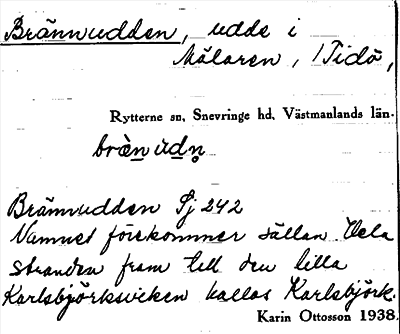 Brännudden, udde i
Mälaren, / Tidö,
Rytterne sn, Snevringe hd, Västmanlands län.
bræ̀n ud̲n̥
Brännudden Sj 242
Namnet förekommer sällan Hela
stranden fram till den lilla
Karlsbjörksviken kallas Karlsbjörk.
Karin Ottosson 1938.